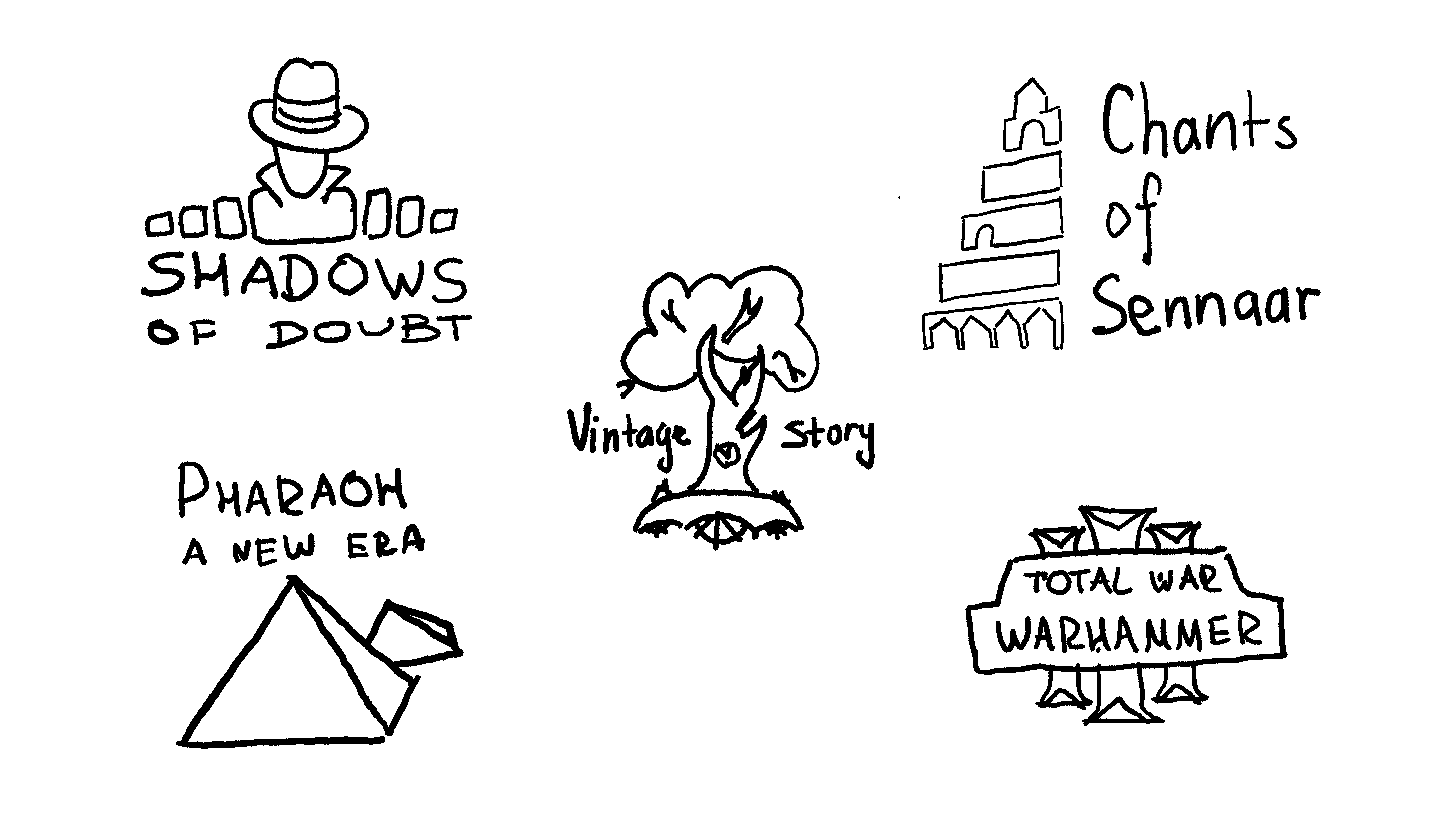 SHADOWS
OF DOUBT
Chants
of
Sennaar
Vintage Story
PHARAOH
A NEW ERA
TOTAL WAR
WARHAMMER